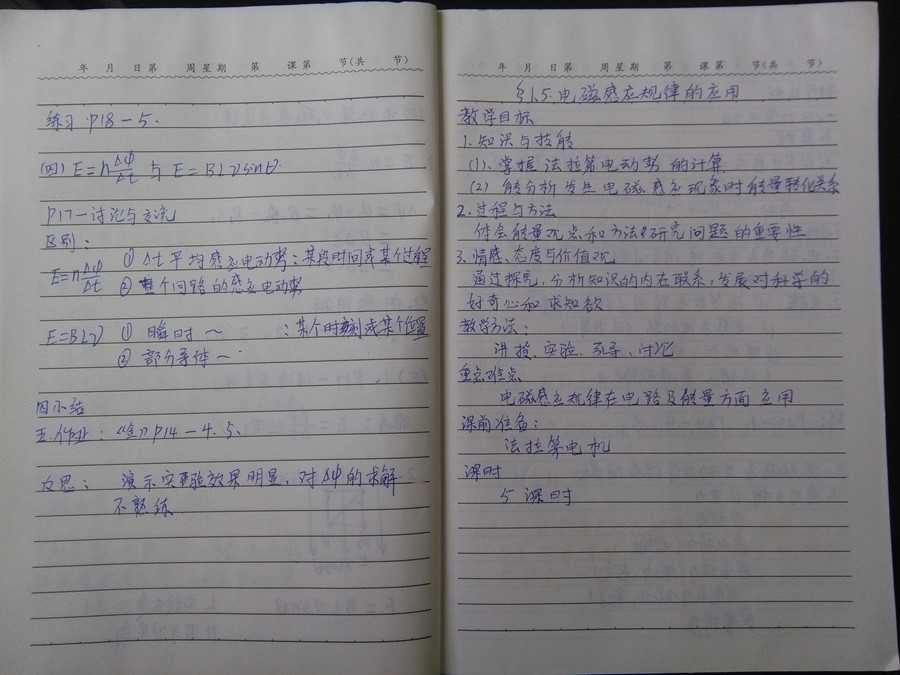 年 月 日第 周星期 第 课第 节(共 节)
练习 P18-5.
(四) E=nΔφ/Δt 与 E=BLVsinθ.
P17-讨论与交流
区别:
E=nΔφ/Δt ① Δt平均感应电动势:某段时间或某个过程
② 整个回路的感应电动势
E=BLV ① 瞬时~ :某个时刻或某个位置
② 部分导体~
四小结
五.作业:《全》P14-4.5.
反思: 演示实验效果明显,对Δφ的求解
不熟练
年 月 日第 周星期 第 课第 节(共 节)
§1.5.电磁感应规律的应用
教学目标
1.知识与技能
(1)、掌握法拉第电动势的计算
(2) 能分析发生电磁感应现象时能量转化关系
2.过程与方法
体会能量观点和方法对研究问题的重要性
3.情感、态度与价值观
通过探究,分析知识的内在联系,发展对科学的
好奇心和求知欲
教学方法:
讲授、实验、引导、讨论
重点难点
电磁感应规律在电路及能量方面应用
课前准备:
法拉第电机
课时
5课时